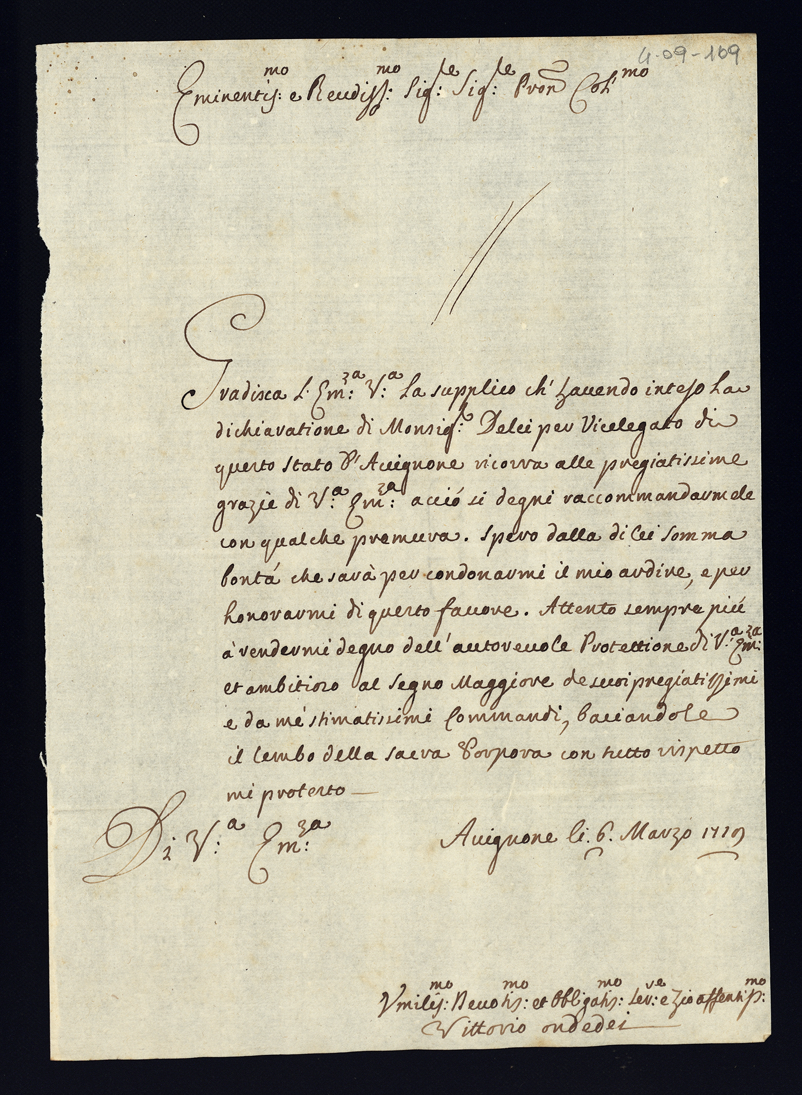 4-09-109
Eminentis:mo e Reudiss:mo Sig:re Sig:re Pron Col:mo
Gradisca l' Em:za V:a La supplico ch' havendo inteso la
dichiaratione di Monsig:r Delci per Vicelegato di
questo stato d'Auignone ricorra alle pregiatissime
grazie di V:a Em:za acciò si degni raccommandarmele
con qualche premura. Spero dalla di lei somma
bontà che sarà per condonarmi il mio ardire, e per
honorarmi di questo fauore. Attento sempre più
à rendermi degno dell' autoreuole Protettione di V:a Em:za
et ambitioso al segno Maggiore de suoi pregiatissimi
e da mé stimatissimi Commandi, baciandole
il lembo della sacra Porpora con tutto rispetto
mi protesto
Di V:a Em:za
Auignone li. 6. Marzo 1719
Vmilis:mo Deuotis:mo et Obbligatis:mo Ser:re e Zio affentis:mo
Vittorio ondedei